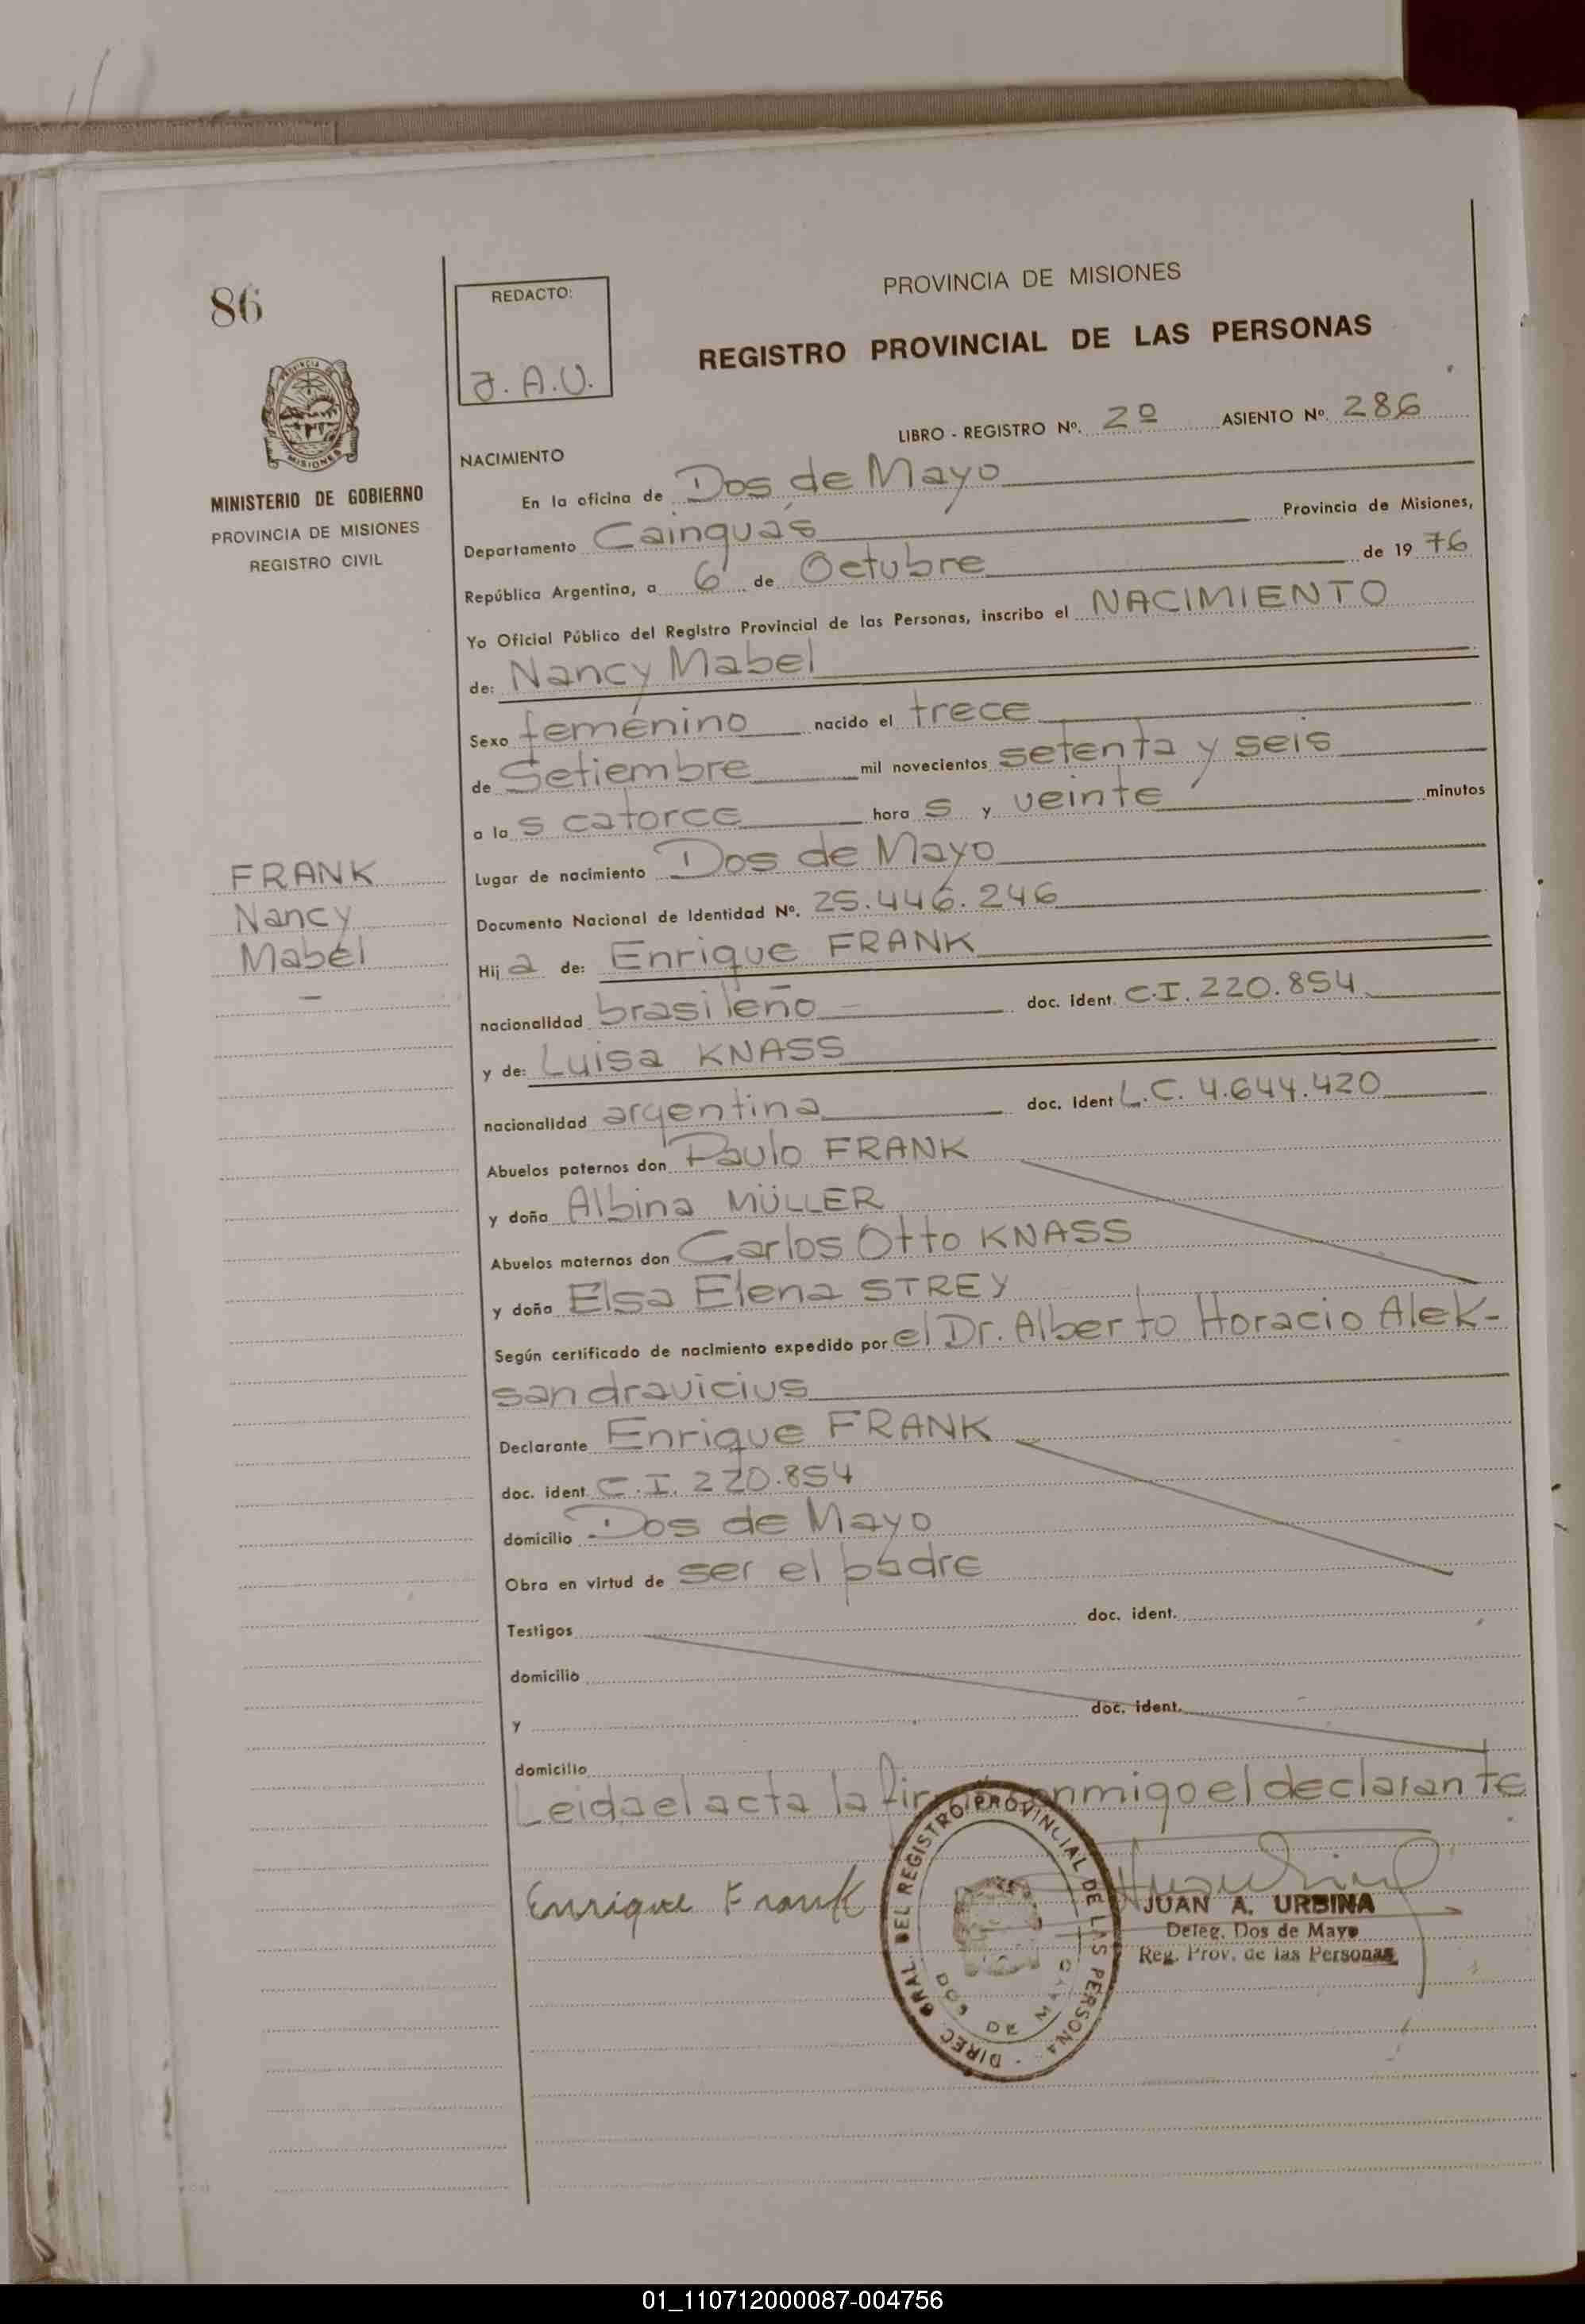 86
REDACTO:
J.A.U.
PROVINCIA DE MISIONES
REGISTRO PROVINCIAL DE LAS PERSONAS
LIBRO - REGISTRO Nº. 2º ASIENTO Nº. 286
PROVINCIA DE
MISIONES
MINISTERIO DE GOBIERNO
PROVINCIA DE MISIONES
REGISTRO CIVIL
NACIMIENTO
En la oficina de Dos de Mayo
Departamento Cainguás Provincia de Misiones,
República Argentina, a 6 de Octubre de 19 76
Yo Oficial Público del Registro Provincial de las Personas, inscribo el NACIMIENTO
de: Nancy Mabel
Sexo femenino nacido el trece
de Setiembre mil novecientos setenta y seis
a la s catorce hora s y veinte minutos
Lugar de nacimiento Dos de Mayo
Documento Nacional de Identidad Nº. 25.446.246
FRANK
Nancy
Mabel
Hij a de: Enrique FRANK
nacionalidad brasileño doc. ident. C.I. 220.854
y de: Luisa KNASS
nacionalidad argentina doc. ident L.C. 4.644.420
Abuelos paternos don Paulo FRANK
y doña Albina MÜLLER
Abuelos maternos don Carlos Otto KNASS
y doña Elsa Elena STREY
Según certificado de nacimiento expedido por el Dr. Alberto Horacio Alek-
sandravicius
Declarante Enrique FRANK
doc. ident C.I. 220.854
domicilio Dos de Mayo
Obra en virtud de ser el padre
Testigos doc. ident.
domicilio
y doc. ident.
domicilio
Leida el acta la conmigo el declarante
Enrique Frank
DIREC GRAL DEL REGISTRO PROVINCIAL DE LAS PERSONA
DOS DE MAYO
JUAN A. URBINA
Deleg. Dos de Mayo
Reg. Prov. de las Personas
01_110712000087-004756